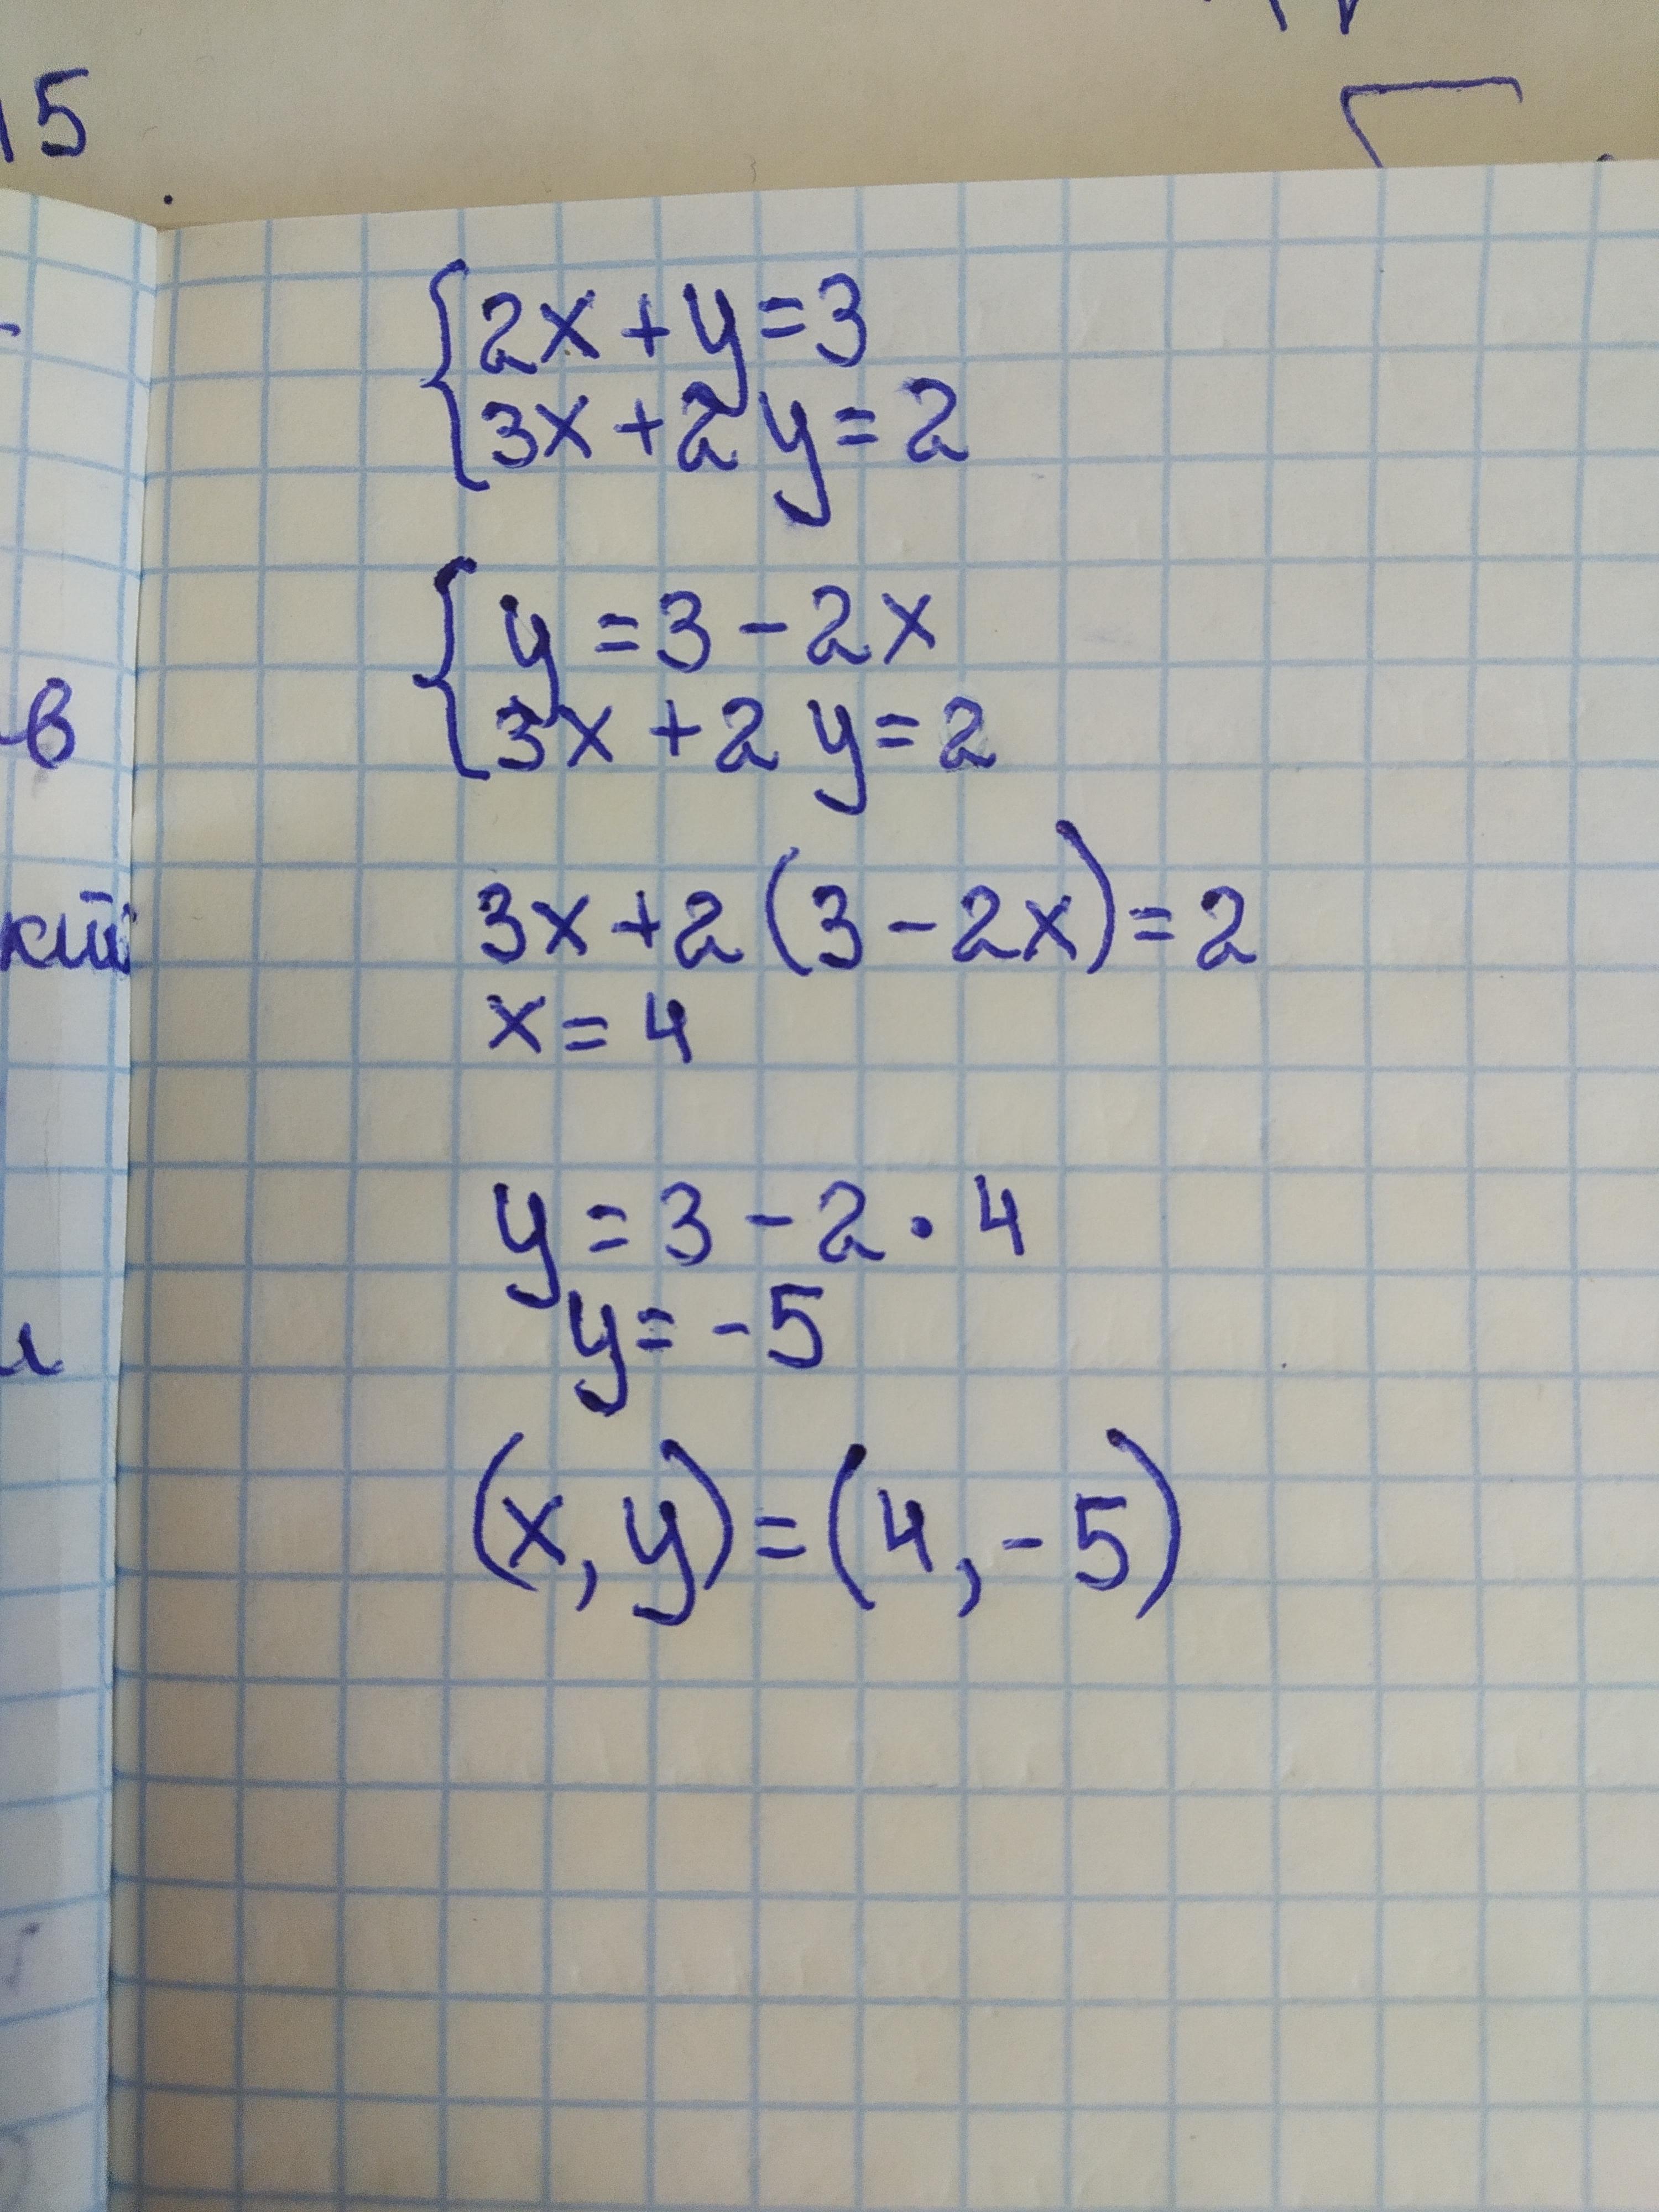 15
{2x+y=3
3x+2y=2
{y=3-2x
3x+2y=2
-в
3x+2(3-2x)=2
x=4
y=3-2·4
y=-5
(x,y)=(4,-5)